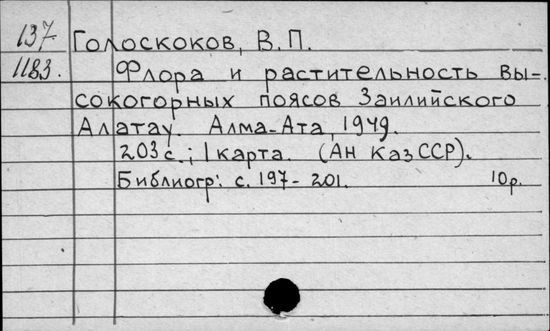 137 Голоскоков, В.П.
1183. Флора и растительность вы-
сокогорных поясов Заилийского
Алатау. Алма-Ата, 1949.
203 с.; 1 карта. (АН КазССР).
Библиогр: с. 197-201. 10р.